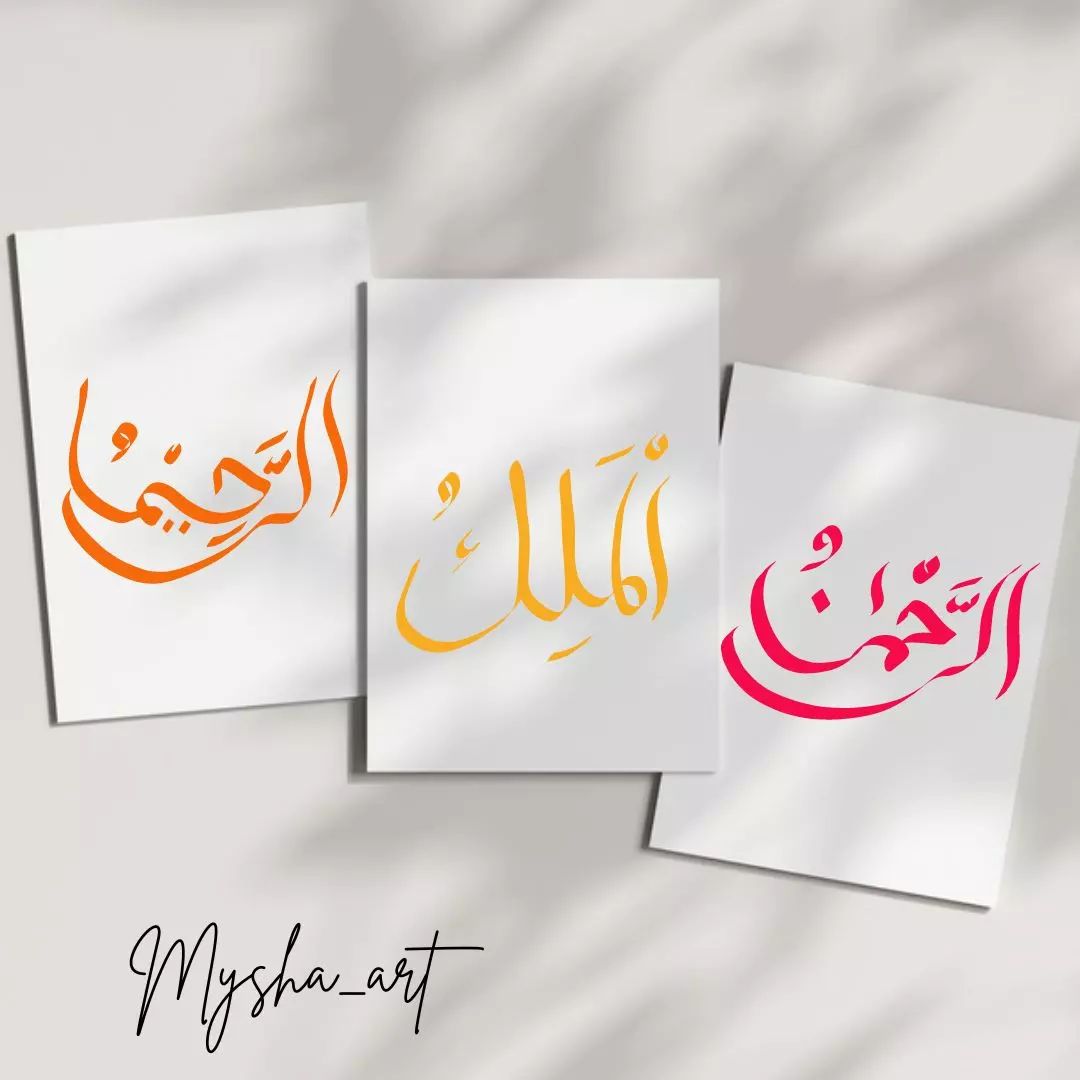 الرَّحْمٰنُ
ٱلْمَلِكُ
الرَّحِيْمُ
Mysha_art